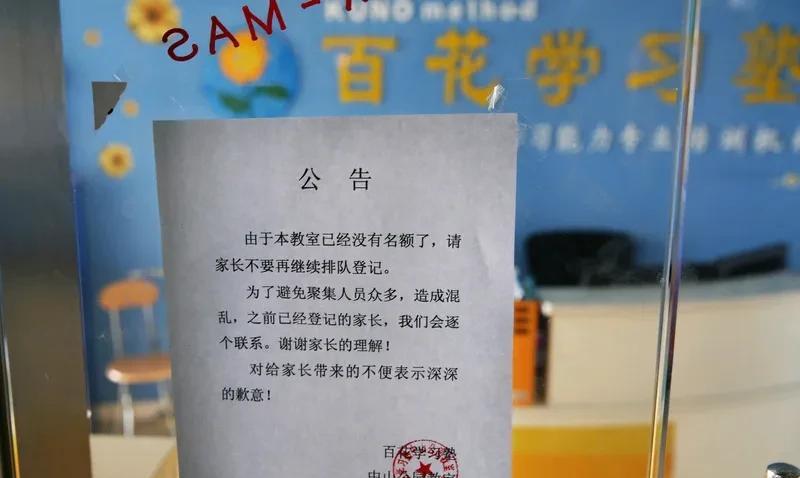 KUNO method
百花学习塾
公 告
由于本教室已经没有名额了，请
家长不要再继续排队登记。
为了避免聚集人员众多，造成混
乱，之前已经登记的家长，我们会逐
个联系。谢谢家长的理解！
对给家长带来的不便表示深深
的歉意！
百花学习塾